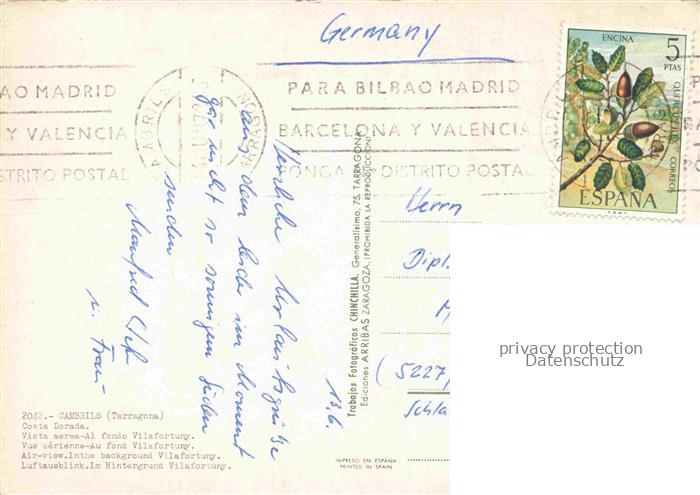 Germany
ENCINA
5
PTAS
QUERCUS ILEX
CORREOS
ESPAÑA
F.N.M.T.
AO MADRID
Y VALENCIA
DISTRITO POSTAL
CAMBRILS
PARA BILBAO MADRID
BARCELONA Y VALENCIA
PONGA DISTRITO POSTAL
Herzliche Urlaubsgrüße
aus dem leider im Moment
gar nicht so sonnigem Süden
senden
Manfred
u. Frau
13.6.
Trabajos Fotográficos CHINCHILLA. Generalísimo, 75. TARRAGONA
Ediciones ARRIBAS ZARAGOZA. (PROHIBIDA LA REPRODUCCION)
Herrn
Dipl.
(5227)
Schla
privacy protection
Datenschutz
2048.- CAMBRILS (Tarragona)
Costa Dorada.
Vista aerea-Al fondo Vilafortuny.
Vue aérienne-Au fond Vilafortuny.
Air-view.Inthe background Vilafortuny.
Luftausblick.Im Hintergrund Vilafortuny.
IMPRESO EN ESPAÑA
PRINTED IN SPAIN